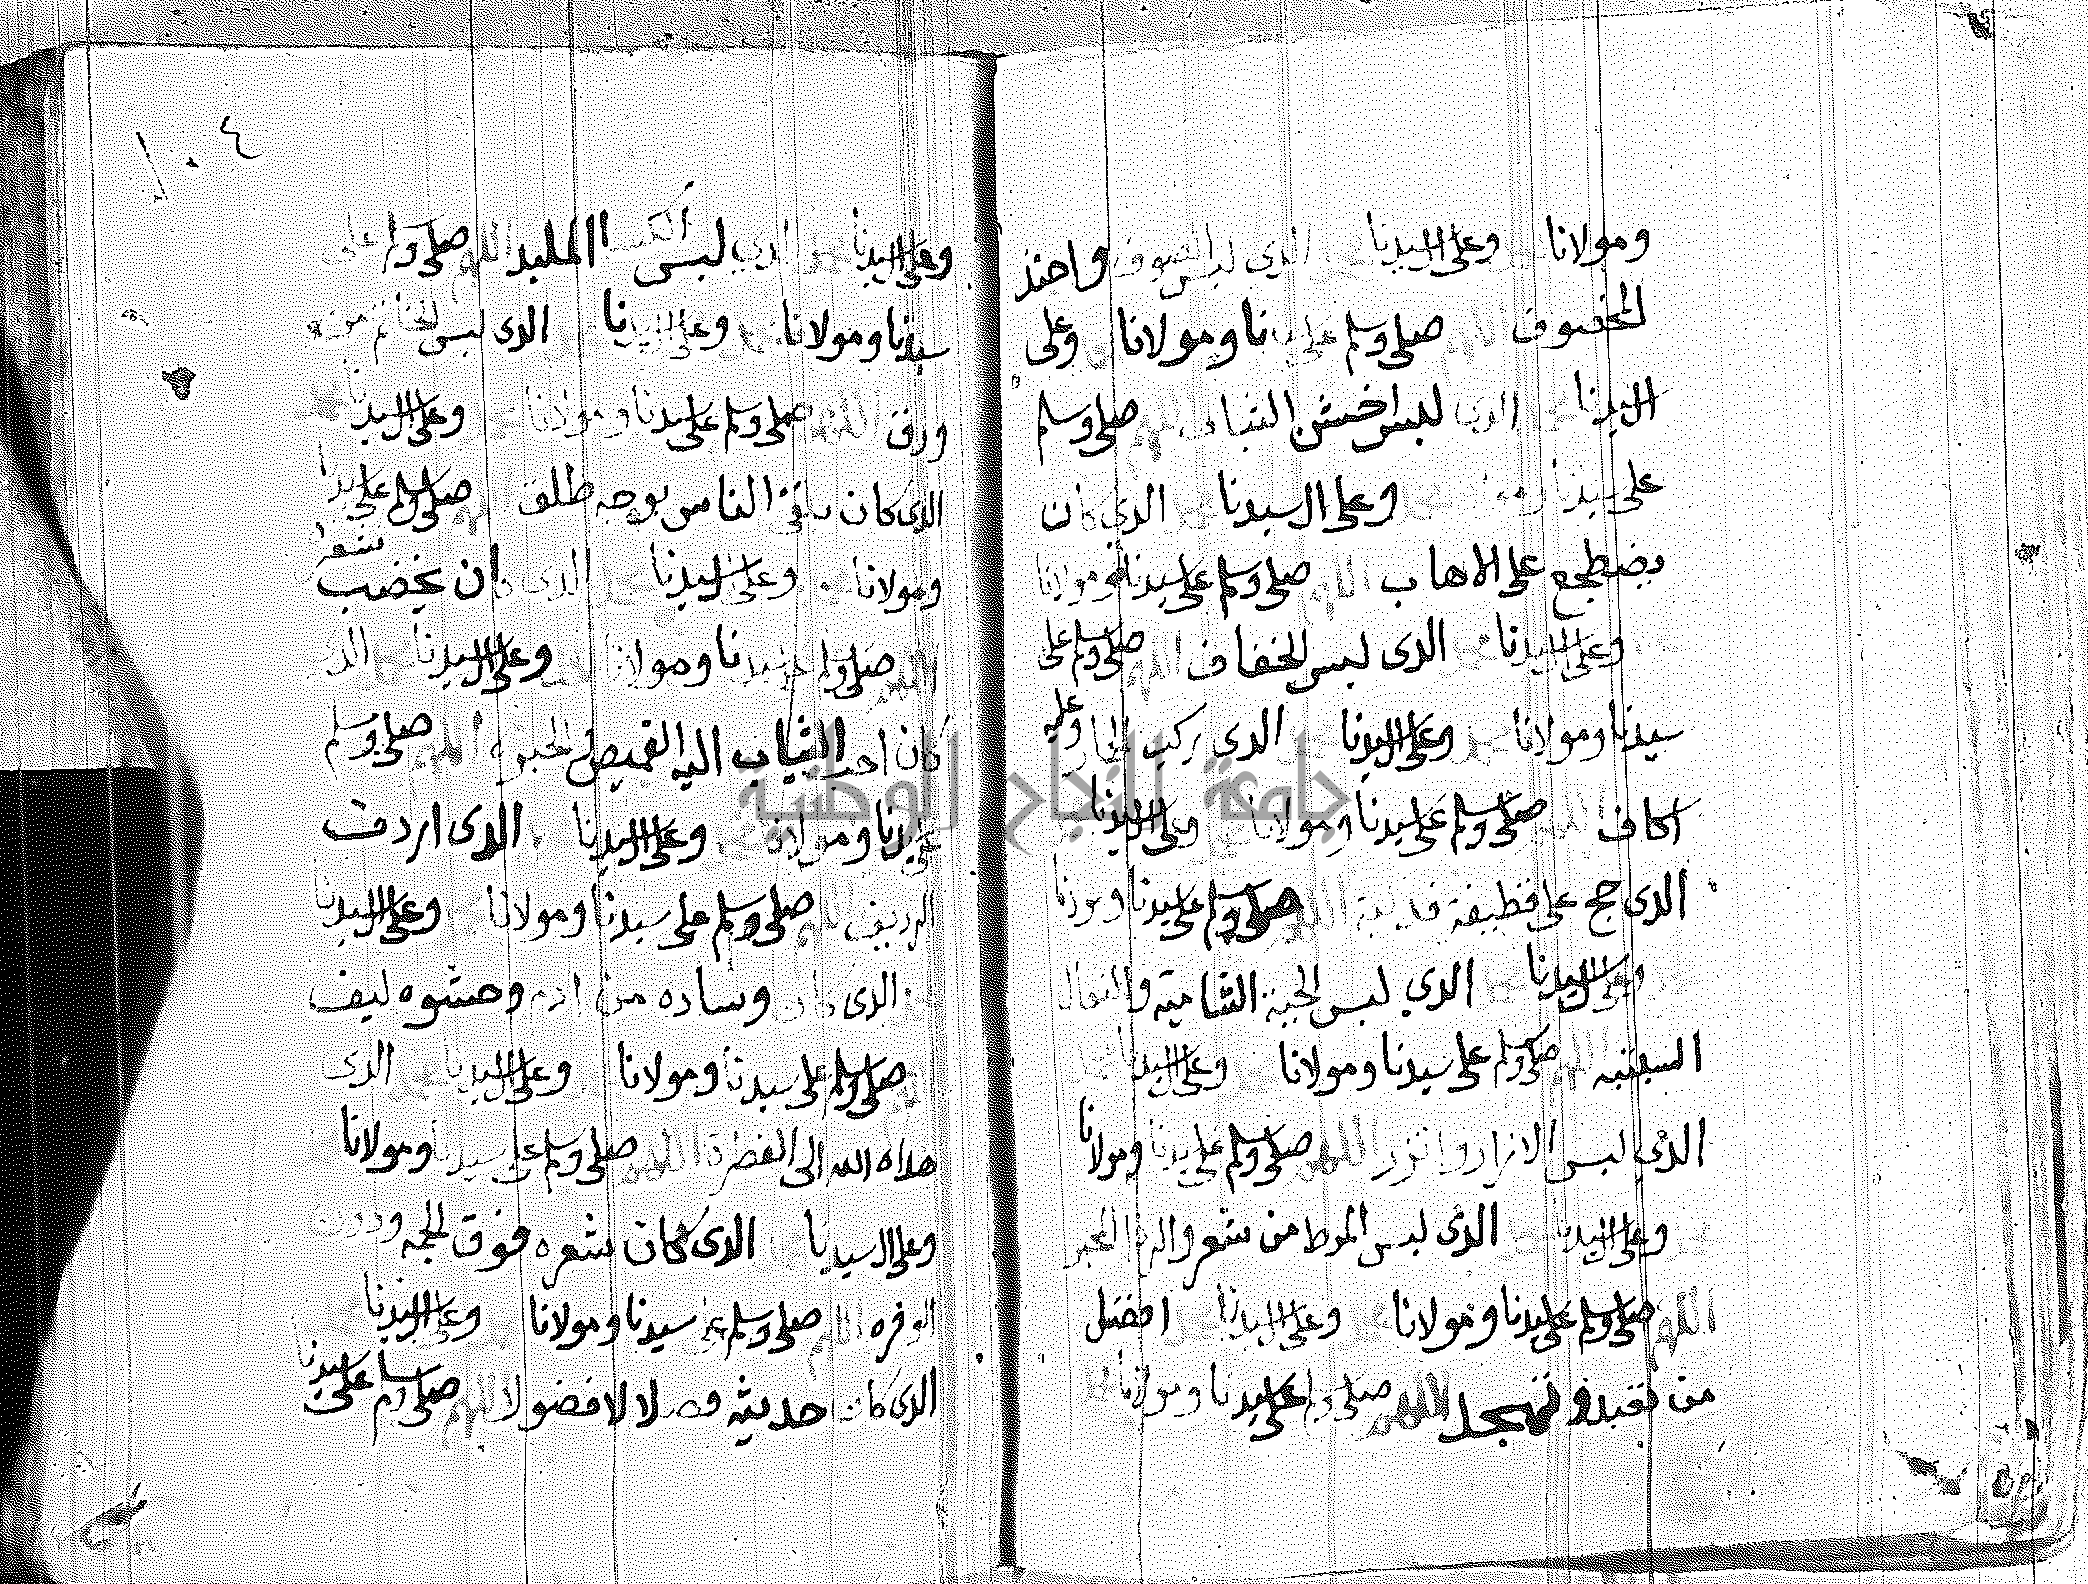 ومولانا وعلى ال سيدنا الذي لبس الصوف واحتذ
المخصوف صلى وسلم على سيدنا ومولانا وعلى
ال سيدنا الذي لبس اخشن الثياب اللهم صلى وسلم
على سيدنا وعلى ال سيدنا الذي كان
يضطجع على الاهاب اللهم صلى وسلم على سيدنا ومولانا
وعلى ال سيدنا الذى لبس الخفاف اللهم صلى وسلم على
سيدنا ومولانا وعلى ال سيدنا الذى ركب الحمار وعليه
اكاف اللهم صلى وسلم على سيدنا ومولانا وعلى ال سيدنا
الذى حج على قطيفة اللهم صلى وسلم على سيدنا ومولانا
وعلى ال سيدنا الذي لبس الجبة الشامية والنعال
السبتيه اللهم صلى وسلم على سيدنا ومولانا وعلى ال سيدنا
الذي لبس الازار واتزر اللهم صلى وسلم على سيدنا ومولانا
وعلى ال سيدنا الذى لبس المرط من شعر
اللهم صلى وسلم على سيدنا ومولانا وعلى ال سيدنا افضل
من تعبد وتهجد اللهم صلى وسلم على سيدنا ومولانا
١٠٤
وعلى ال سيدنا الذي لبس الكسا الملبد اللهم صلى وسلم على
سيدنا ومولانا وعلى ال سيدنا الذى لبس الخاتم من
ورق اللهم صلى وسلم على سيدنا ومولانا وعلى ال سيدنا
الذى كان يلقى الناس بوجه طلق اللهم صلى وسلم على سيدنا
ومولانا وعلى ال سيدنا الذى كان يخضب شعره
اللهم صلى وسلم على سيدنا ومولانا وعلى ال سيدنا الذى
كان احب الثياب اليه القميص والحبره اللهم صلى وسلم
على سيدنا ومولانا وعلى ال سيدنا الذى اردف
الرديف اللهم صلى وسلم على سيدنا ومولانا وعلى ال سيدنا
الذى كان وساده من ادم وحشوه ليف
اللهم صلى وسلم على سيدنا ومولانا وعلى ال سيدنا الذى
هداه الله الى الفطرة اللهم صلى وسلم على سيدنا ومولانا
وعلى ال سيدنا الذى كان شعره فوق الجمه ودون
الوفره اللهم صلى وسلم على سيدنا ومولانا وعلى ال سيدنا
الذى كان حديثه فصلا لا فضولا اللهم صلى وسلم على سيدنا
جامعة النجاح الوطنية